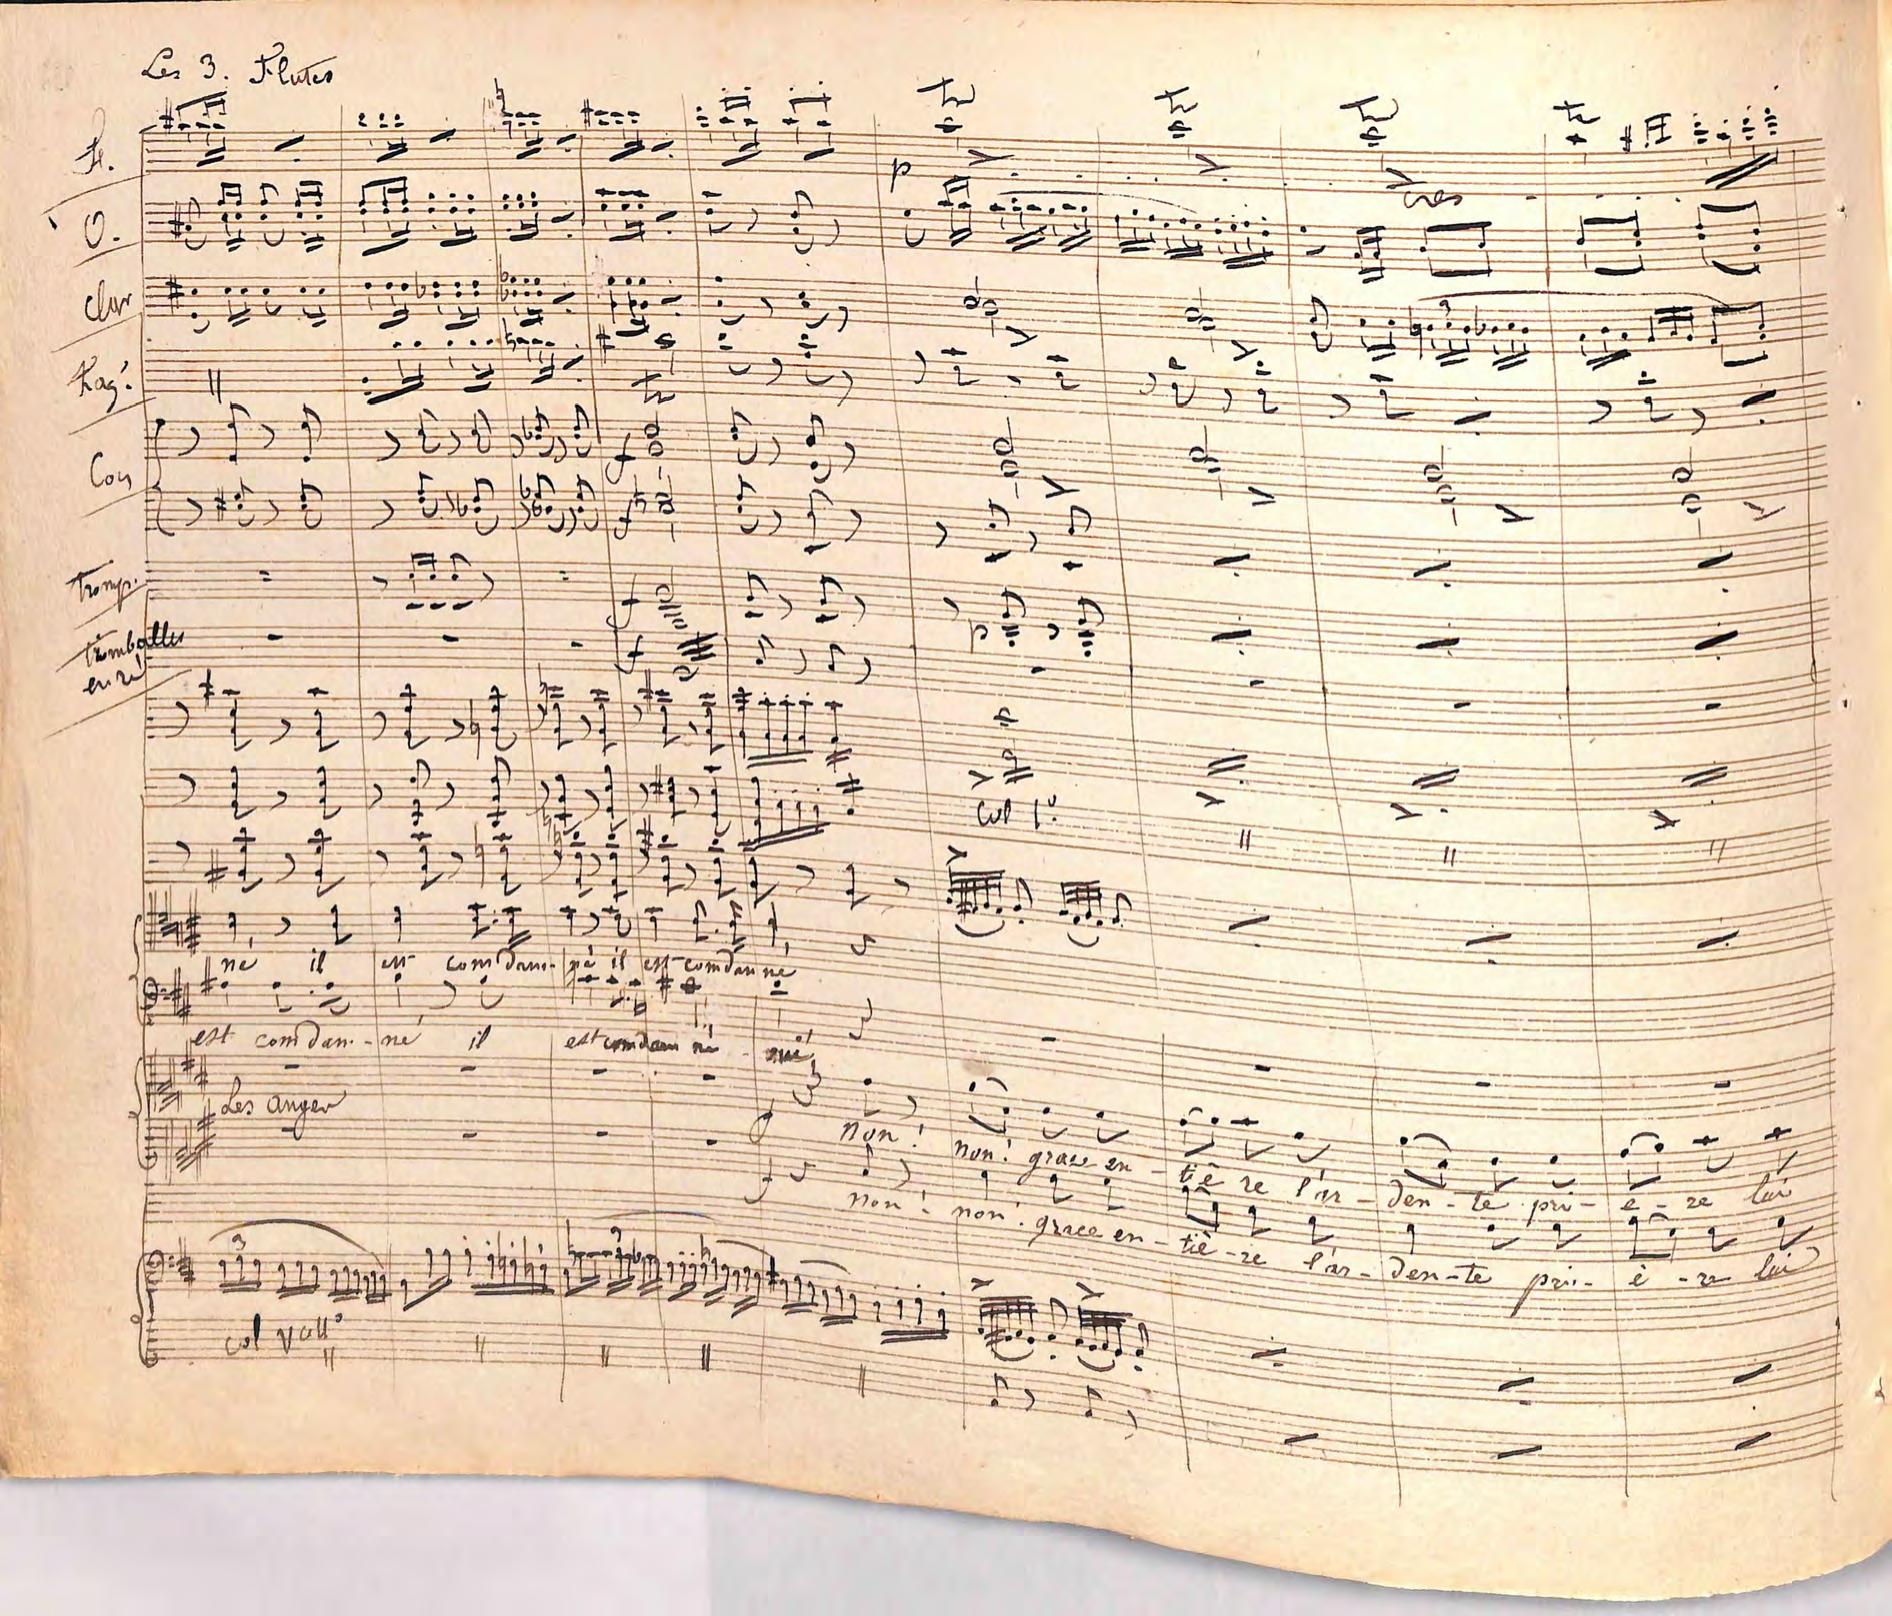 Les 3. Flutes
fl.
O.
clar
fag.
Cors
tromp.
timballes
en ré
p
cres
3
f
f
3
f
f
p
Col 1º
né il est comdam- né il est comdam né
est comdam - né il est comdam né
Les anges
non! non! grace en - tiè re l'ar - den - te pri - è - re lui
f
non! non! grace en - tiè - re l'ar - den - te pri - è - re lui
3
3
col Vcllº